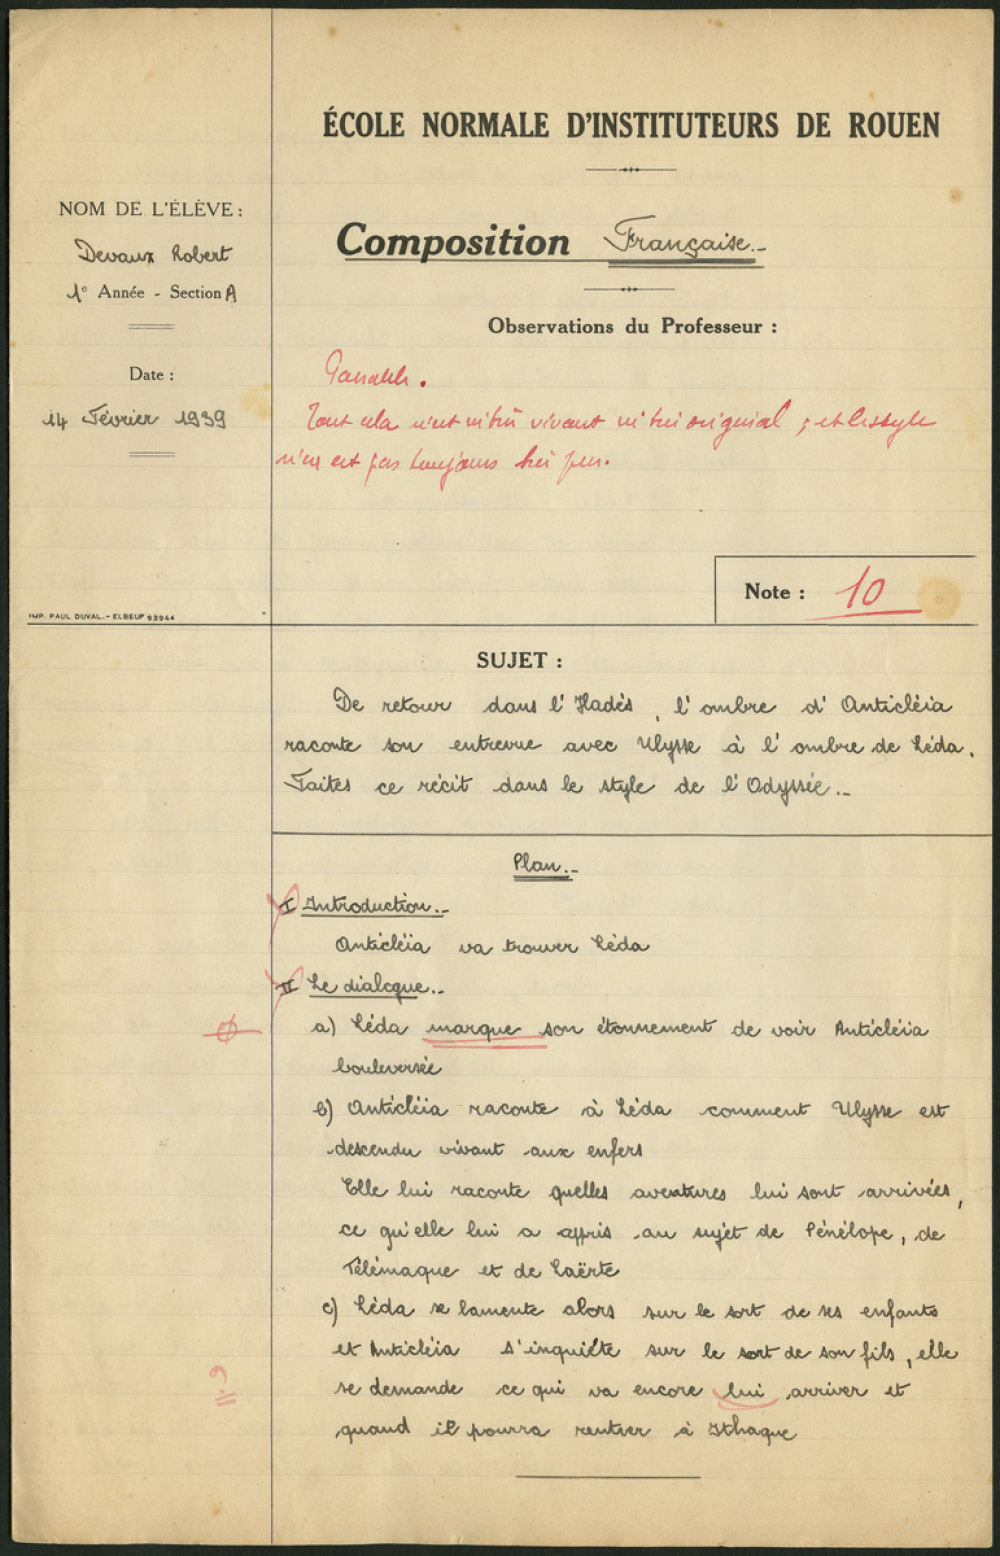 ÉCOLE NORMALE D'INSTITUTEURS DE ROUEN
NOM DE L'ÉLÈVE :
Devaux Robert
1e Année - Section A
Date :
14 Février 1939
Composition Française.-
Observations du Professeur :
Passable.
Tout cela n'est ni très vivant ni très original ; et le style
n'en est pas toujours très pur.
Note : 10
IMP. PAUL DUVAL. - ELBEUF 93944
SUJET :
De retour dans l'Hadès, l'ombre d'Anticléia
raconte son entrevue avec Ulysse à l'ombre de Léda.
Faites ce récit dans le style de l'Odyssée.-
Plan.-
I Introduction.-
Anticléia va trouver Léda
II Le dialogue.-
a) Léda marque son étonnement de voir Anticléia
bouleversée
b) Anticléia raconte à Léda comment Ulysse est
descendu vivant aux enfers
Elle lui raconte quelles aventures lui sont arrivées,
ce qu'elle lui a appris au sujet de Pénélope, de
Télémaque et de Laërte
c) Léda se lamente alors sur le sort de ses enfants
et Anticléia s'inquiète sur le sort de son fils, elle
se demande ce qui va encore lui arriver et
quand il pourra rentrer à Ithaque